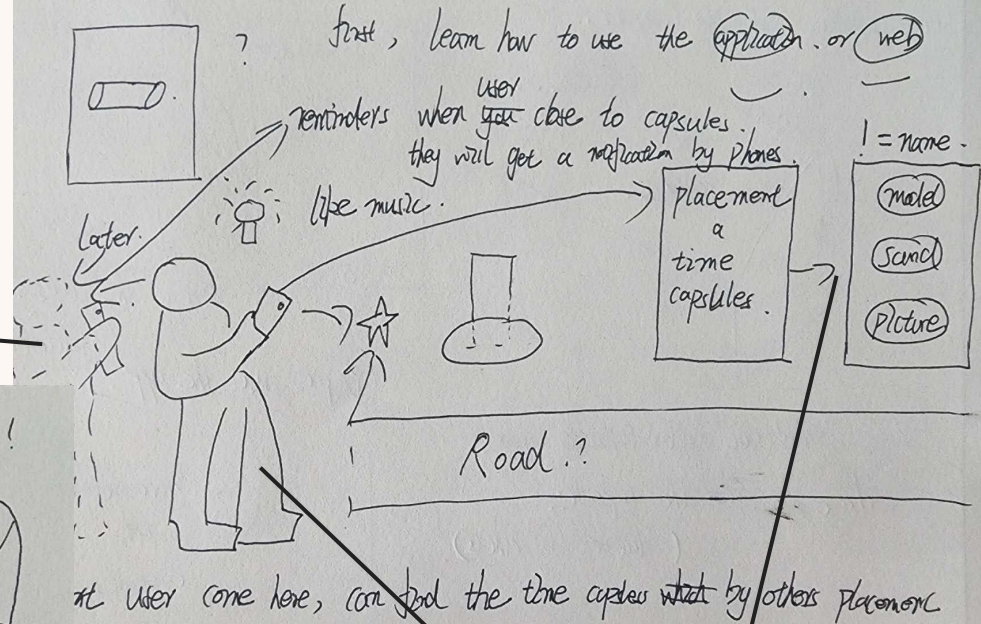 ?
first, learn how to use the application. or web
user
reminders when you close to capsules.
they will get a notification by phones.
! = name.
like music.
placement
a
time
capsules.
model
sound
picture
Later.
!
Road.?
user come here, can find the time capsules which by others placement